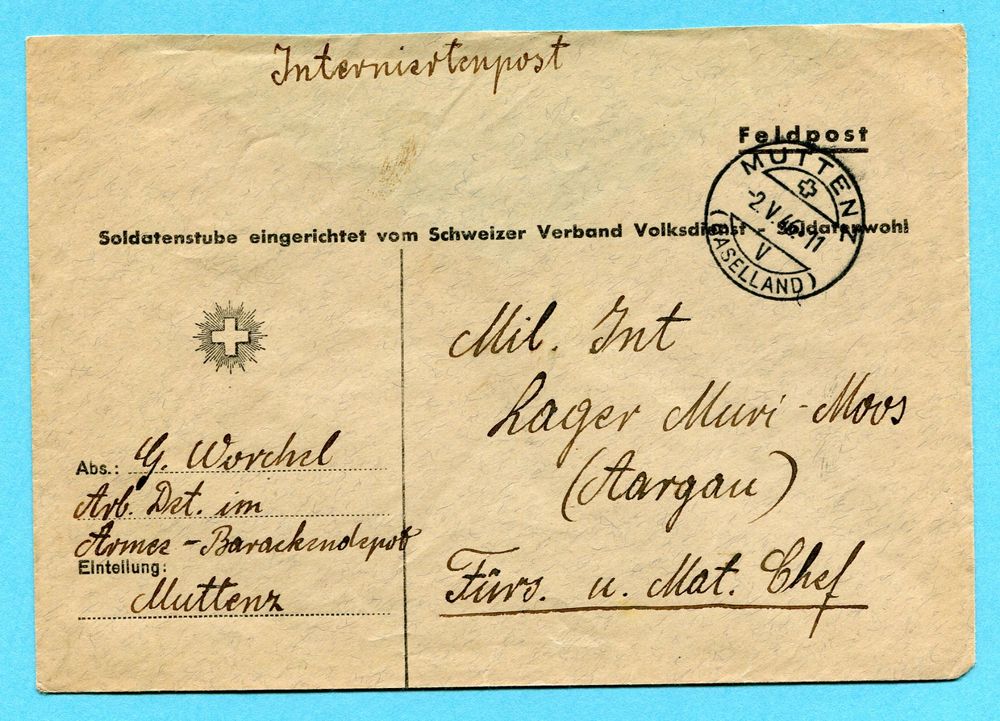 Interniertenpost
Feldpost
MUTTENZ
-2.V.46.-11
V
(BASELLAND)
Soldatenstube eingerichtet vom Schweizer Verband Volksdienst - Soldatenwohl
Mil. Int
Lager Muri-Moos
(Aargau)
Fürs. u. Mat. Chef
Abs.: G. Worchel
Arb. Det. im
Armee-Barackendepot
Einteilung:
Muttenz